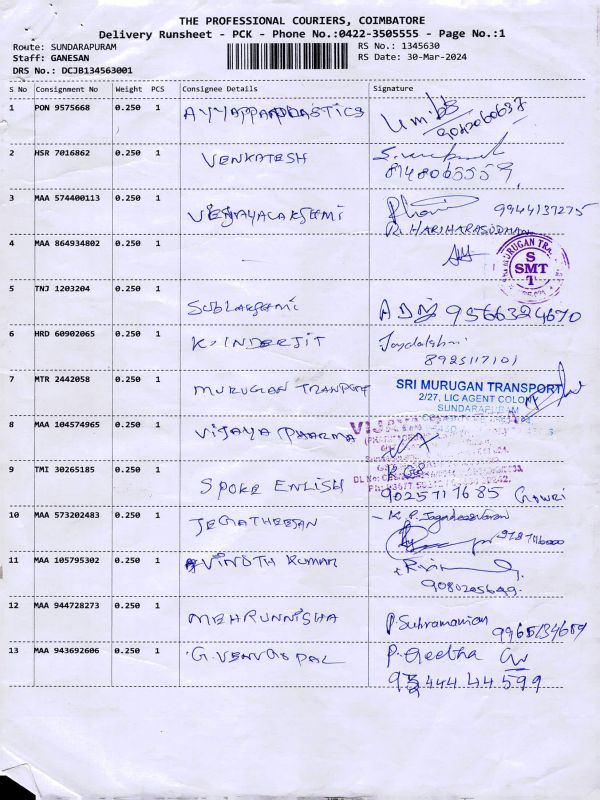 THE PROFESSIONAL COURIERS, COIMBATORE
Delivery Runsheet - PCK - Phone No.:0422-3505555 - Page No.:1
Route: SUNDARAPURAM RS No.: 1345630
Staff: GANESAN RS Date: 30-Mar-2024
DRS No.: DCJB134563001
S No Consignment No Weight PCS Consignee Details Signature
1 PON 9575668 0.250 1
2 HSR 7016862 0.250 1 VENKATESH
3 MAA 574400113 0.250 1 9944137275
R. HARIHARASUDHAN
4 MAA 864934802 0.250 1
MURUGAN TRA
S
SMT
T
5 TNJ 1203204 0.250 1 9566324670
6 HRD 60902065 0.250 1 K. INDERJIT
8925117101
7 MTR 2442058 0.250 1 MURUGAN SRI MURUGAN TRANSPORT
2/27, LIC AGENT COLONY
SUNDARAPURAM
8 MAA 104574965 0.250 1 VIJAYA PHARMA
9 TMI 30265185 0.250 1 SPOKE ENLISH
9025711685 Gowri
10 MAA 573202483 0.250 1 JEGATHEESAN K. P. Jagadeeswaran
11 MAA 105795302 0.250 1 VINOTH KUMAR
12 MAA 944728273 0.250 1 MEHRUNNISHA P. Subramanian
13 MAA 943692606 0.250 1 P. Geetha